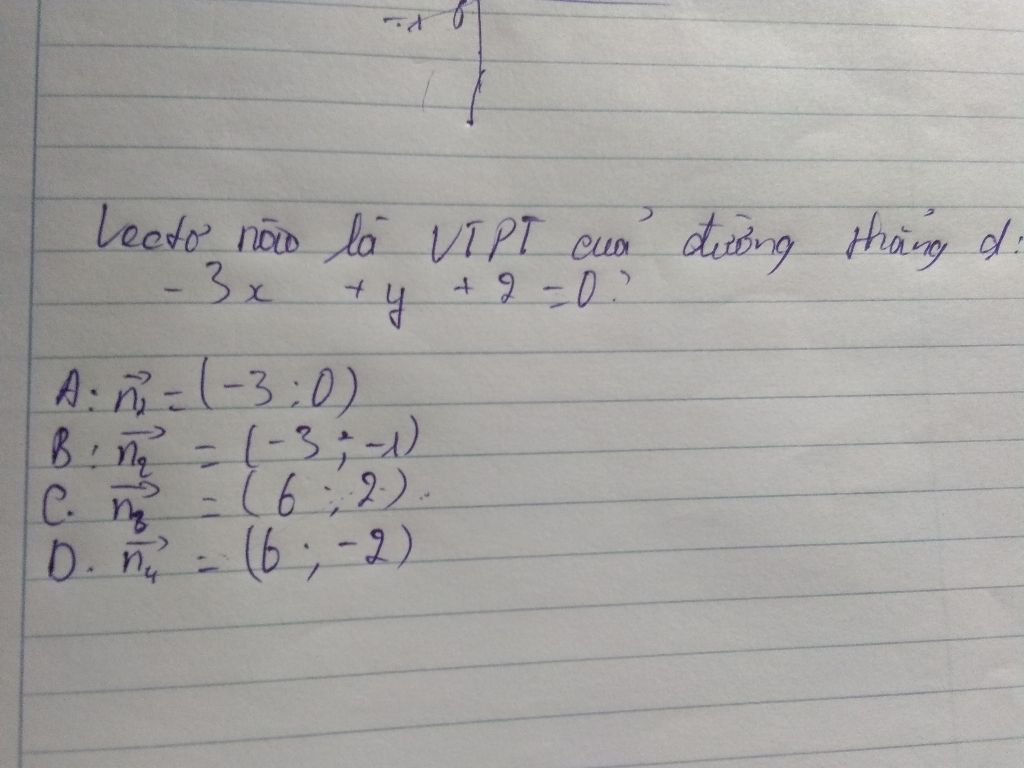 Vectơ nào là VTPT của đường thẳng d:
-3x + y + 2 = 0?
A: n₁ = (-3 ; 0)
B: n₂ = (-3 ; -1)
C. n₃ = (6 ; 2).
D. n₄ = (6 ; -2)